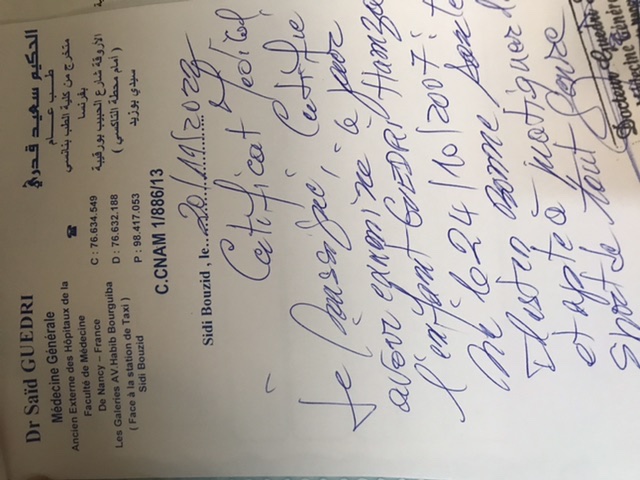 Dr Saïd GUEDRI
Médecine Générale
Ancien Externe des Hôpitaux de la
Faculté de Médecine
De Nancy – France
Les Galeries AV.Habib Bourguiba
( Face à la station de Taxi )
Sidi Bouzid
☎
C : 76.634.549
D : 76.632.188
P : 98.417.053
الحكيم سعيد قدري
طب عام
متخرج من كلية الطب بنانسي
بفرنسا
الأروقة شارع الحبيب بورقيبة
( أمام محطة التاكسي )
سيدي بوزيد
C.CNAM 1/886/13
Sidi Bouzid , le
Certificat Médical
Je soussigné, Certifie
avoir examiné ce jour
l'enfant GUEDRI Hamza
Né le 24/10/2007 :
bonne santé
et apte à pratiquer
Sport de tout genre
Docteur